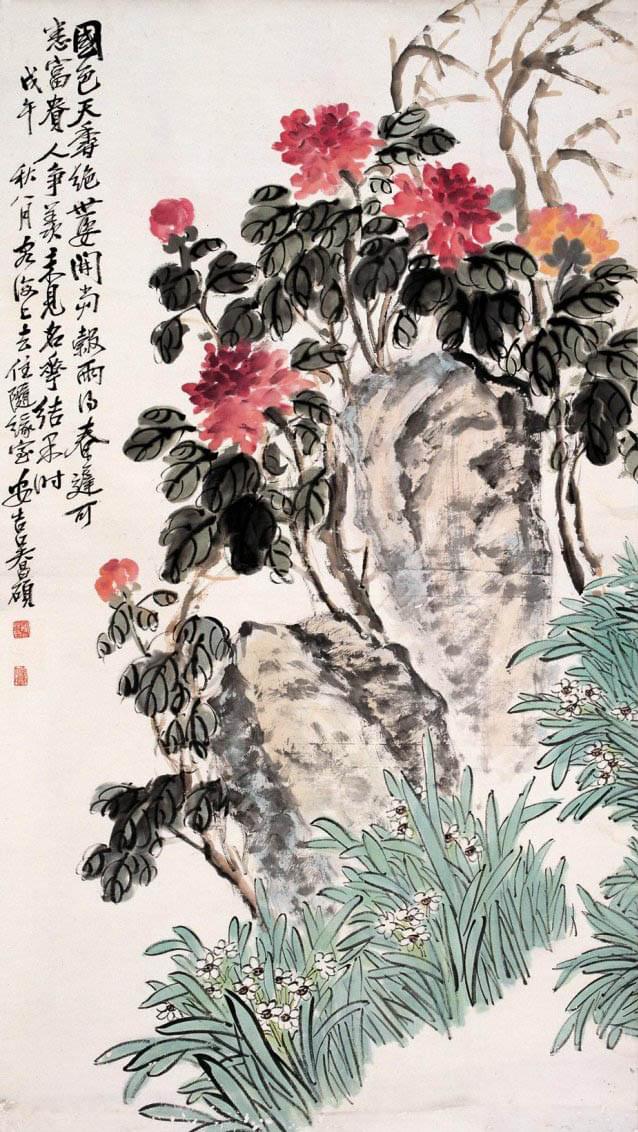 國色天香絕世姿開穀雨得春遲可
富貴人爭羨未見名華結果時
戊午秋八月客海上去住隨緣室安吉吳昌碩